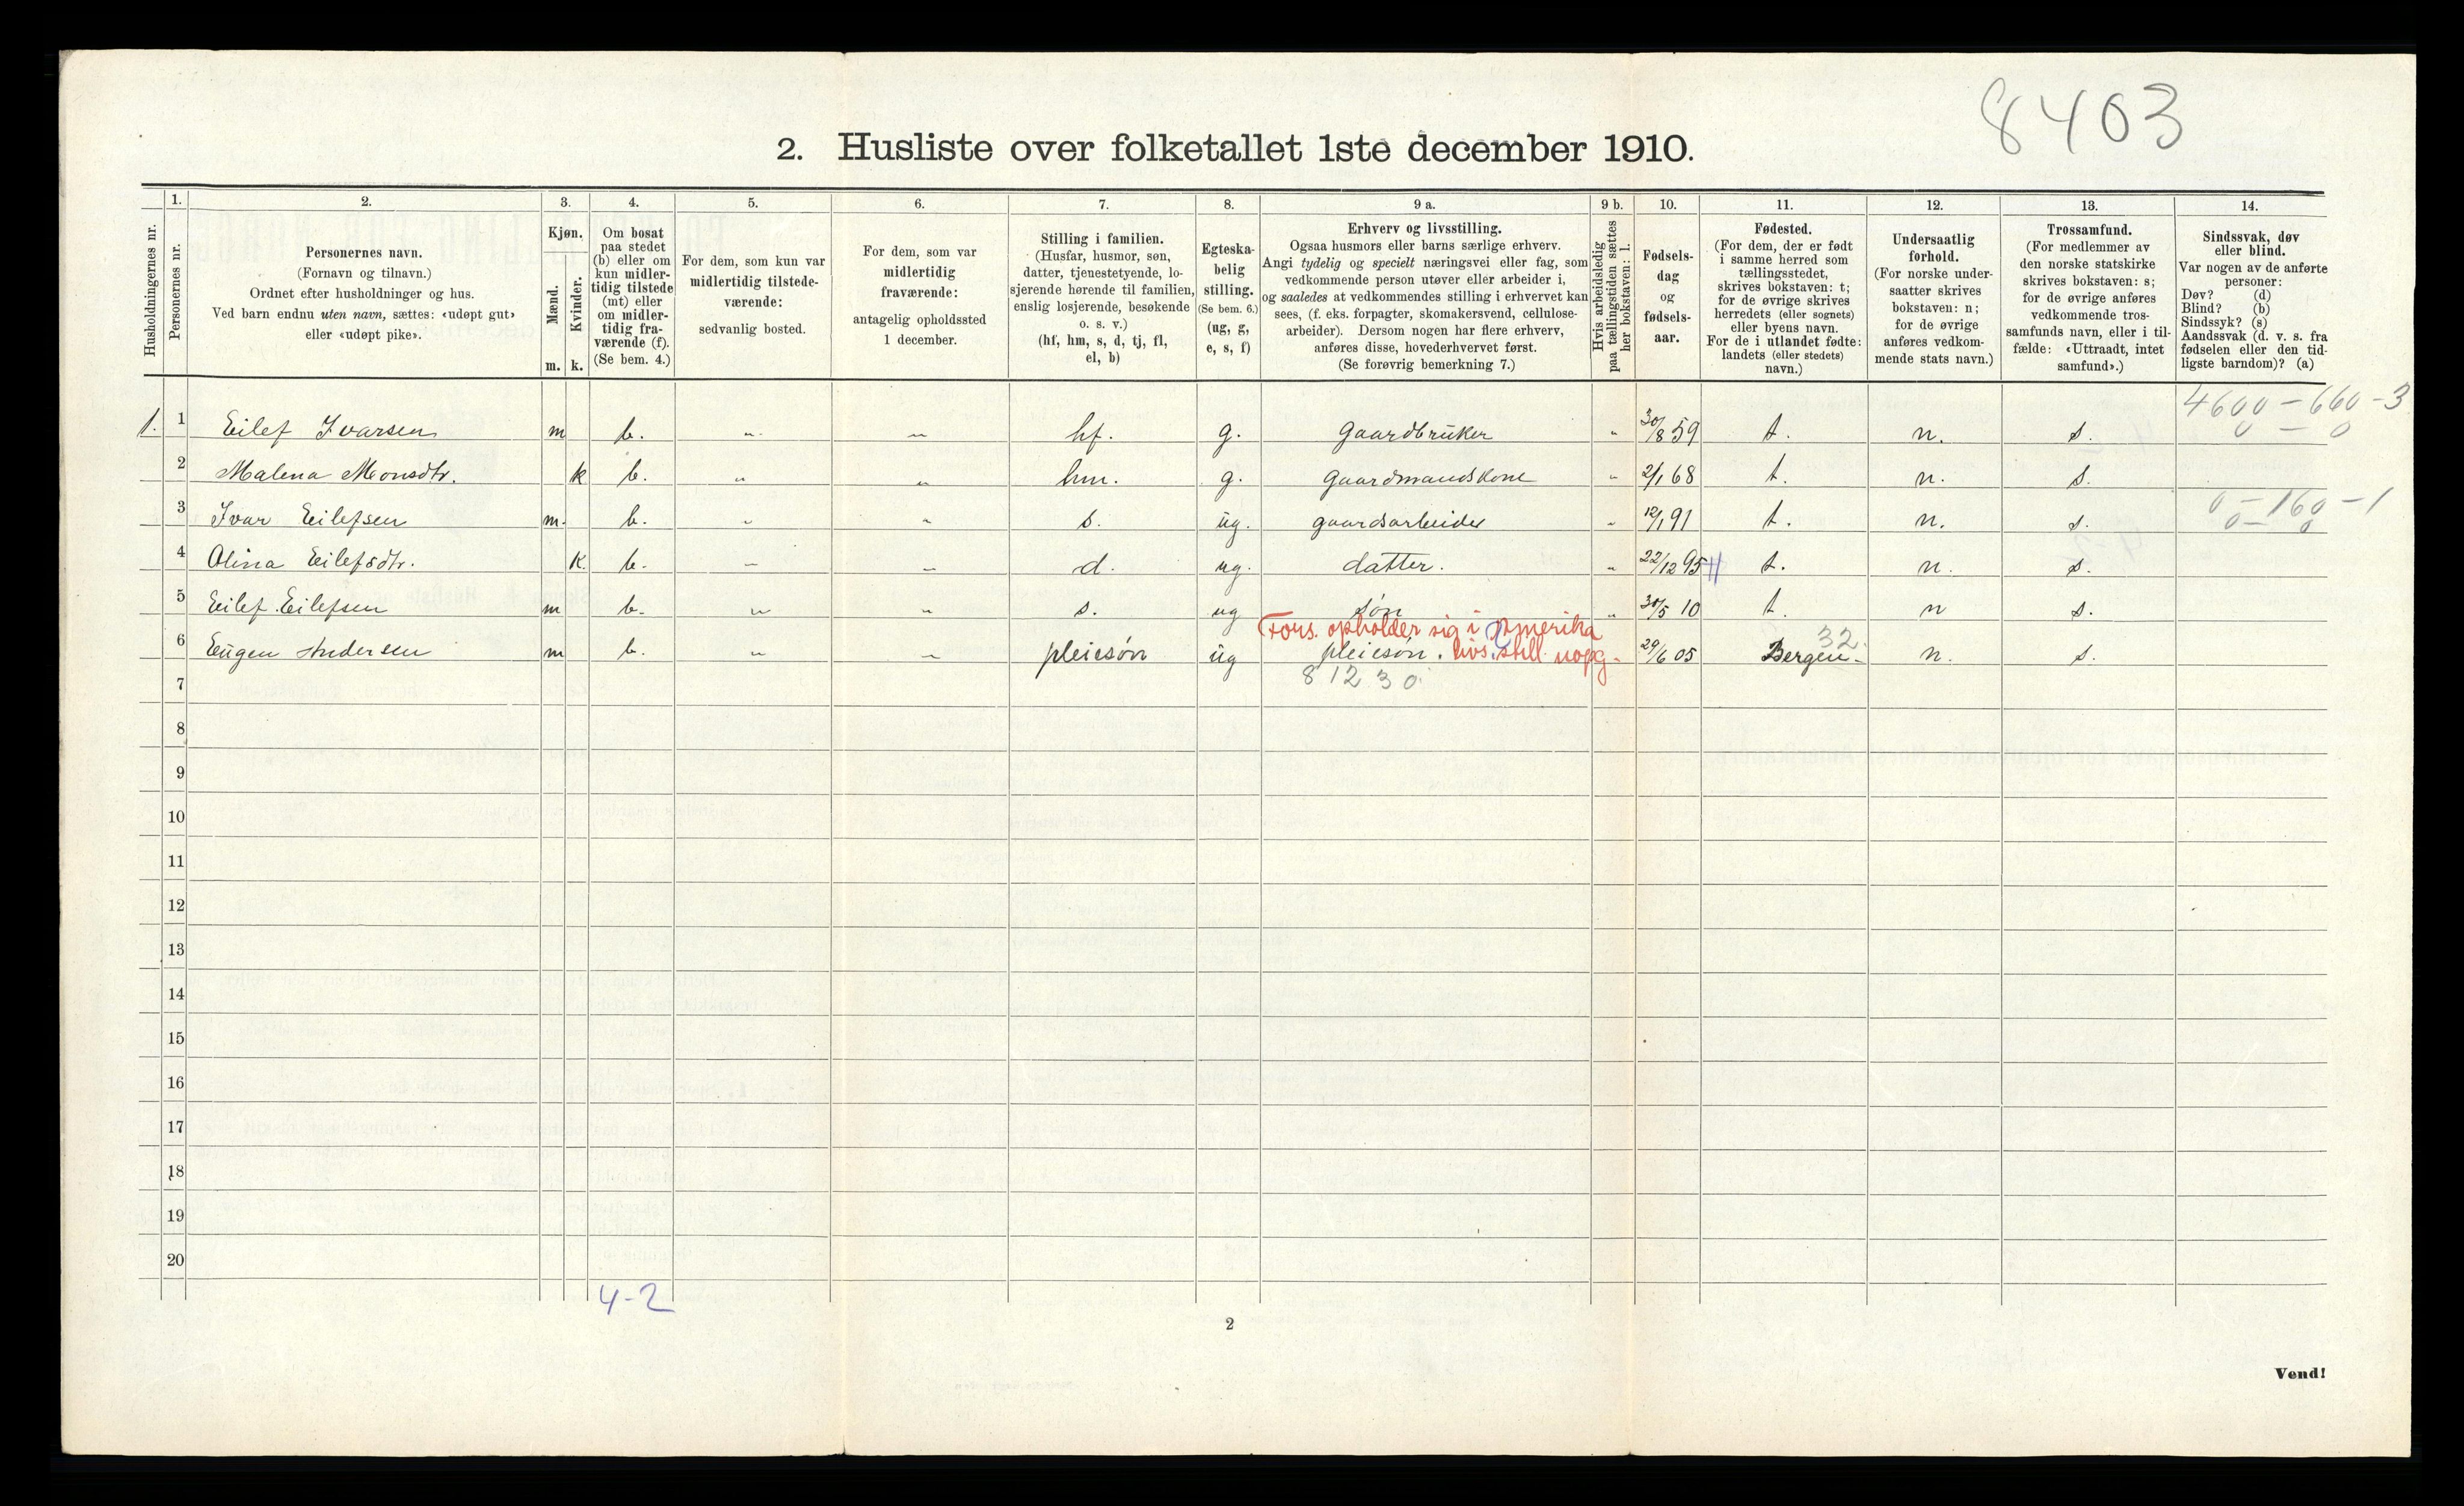 8403
2. Husliste over folketallet 1ste december 1910.
Husholdningernes nr.
1.
Personernes nr.
2.
Personernes navn.
(Fornavn og tilnavn.)
Ordnet efter husholdninger og hus.
Ved barn endnu uten navn, sættes: «udøpt gut»
eller «udøpt pike».
3.
Kjøn.
Mænd.
Kvinder.
m. k.
4.
Om bosat
paa stedet
(b) eller om
kun midler-
tidig tilstede
(mt) eller
om midler-
tidig fra-
værende (f).
(Se bem. 4.)
5.
For dem, som kun var
midlertidig tilstede-
værende:
sedvanlig bosted.
6.
For dem, som var
midlertidig
fraværende:
antagelig opholdssted
1 december.
7.
Stilling i familien.
(Husfar, husmor, søn,
datter, tjenestetyende, lo-
sjerende hørende til familien,
enslig losjerende, besøkende
o. s. v.)
(hf, hm, s, d, tj, fl,
el, b)
8.
Egteska-
belig
stilling.
(Se bem. 6.)
(ug, g,
e, s, f)
9 a.
Erhverv og livsstilling.
Ogsaa husmors eller barns særlige erhverv.
Angi tydelig og specielt næringsvei eller fag, som
vedkommende person utøver eller arbeider i,
og saaledes at vedkommendes stilling i erhvervet kan
sees, (f. eks. forpagter, skomakersvend, cellulose-
arbeider). Dersom nogen har flere erhverv,
anføres disse, hovederhvervet først.
(Se forøvrig bemerkning 7.)
9 b.
Hvis arbeidsledig
paa tællingstiden sættes
her bokstaven: l.
10.
Fødsels-
dag
og
fødsels-
aar.
11.
Fødested.
(For dem, der er født
i samme herred som
tællingsstedet,
skrives bokstaven: t;
for de øvrige skrives
herredets (eller sognets)
eller byens navn.
For de i utlandet fødte:
landets (eller stedets)
navn.)
12.
Undersaatlig
forhold.
(For norske under-
saatter skrives
bokstaven: n;
for de øvrige
anføres vedkom-
mende stats navn.)
13.
Trossamfund.
(For medlemmer av
den norske statskirke
skrives bokstaven: s;
for de øvrige anføres
vedkommende tros-
samfunds navn, eller i til-
fælde: «Uttraadt, intet
samfund».)
14.
Sindssvak, døv
eller blind.
Var nogen av de anførte
personer:
Døv? (d)
Blind? (b)
Sindssyk? (s)
Aandssvak (d. v. s. fra
fødselen eller den tid-
ligste barndom)? (a)
4600 - 660 - 3
0 - 0
1. 1 Eilef Ivarsen m b. " " hf. g. Gaardbruker " 30/8 59 t. n. s.
2 Malena Monsdtr. k b. " " hm. g. Gaardmandskone " 2/1 68 t. n. s.
0 - 160 - 1
0 - 0
3 Ivar Eilefsen m. b. " " s. ug. gaardsarbeider " 12/1 91 t. n. s.
4 Olina Eilefsdtr. k. b. " " d. ug. datter. " 22/12 95 t. n. s.
5 Eilef Eilefsen m b. " " s. ug søn " 30/5 10 t. n s.
Fors. opholder sig i Amerika
32
6 Eugen Andersen m b. " " pleiesøn ug pleiesøn. livs. still. uopg. 29/6 05 Bergen. n. s.
81230
7
8
9
10
11
12
13
14
15
16
17
18
19
20
4-2
2
Vend!